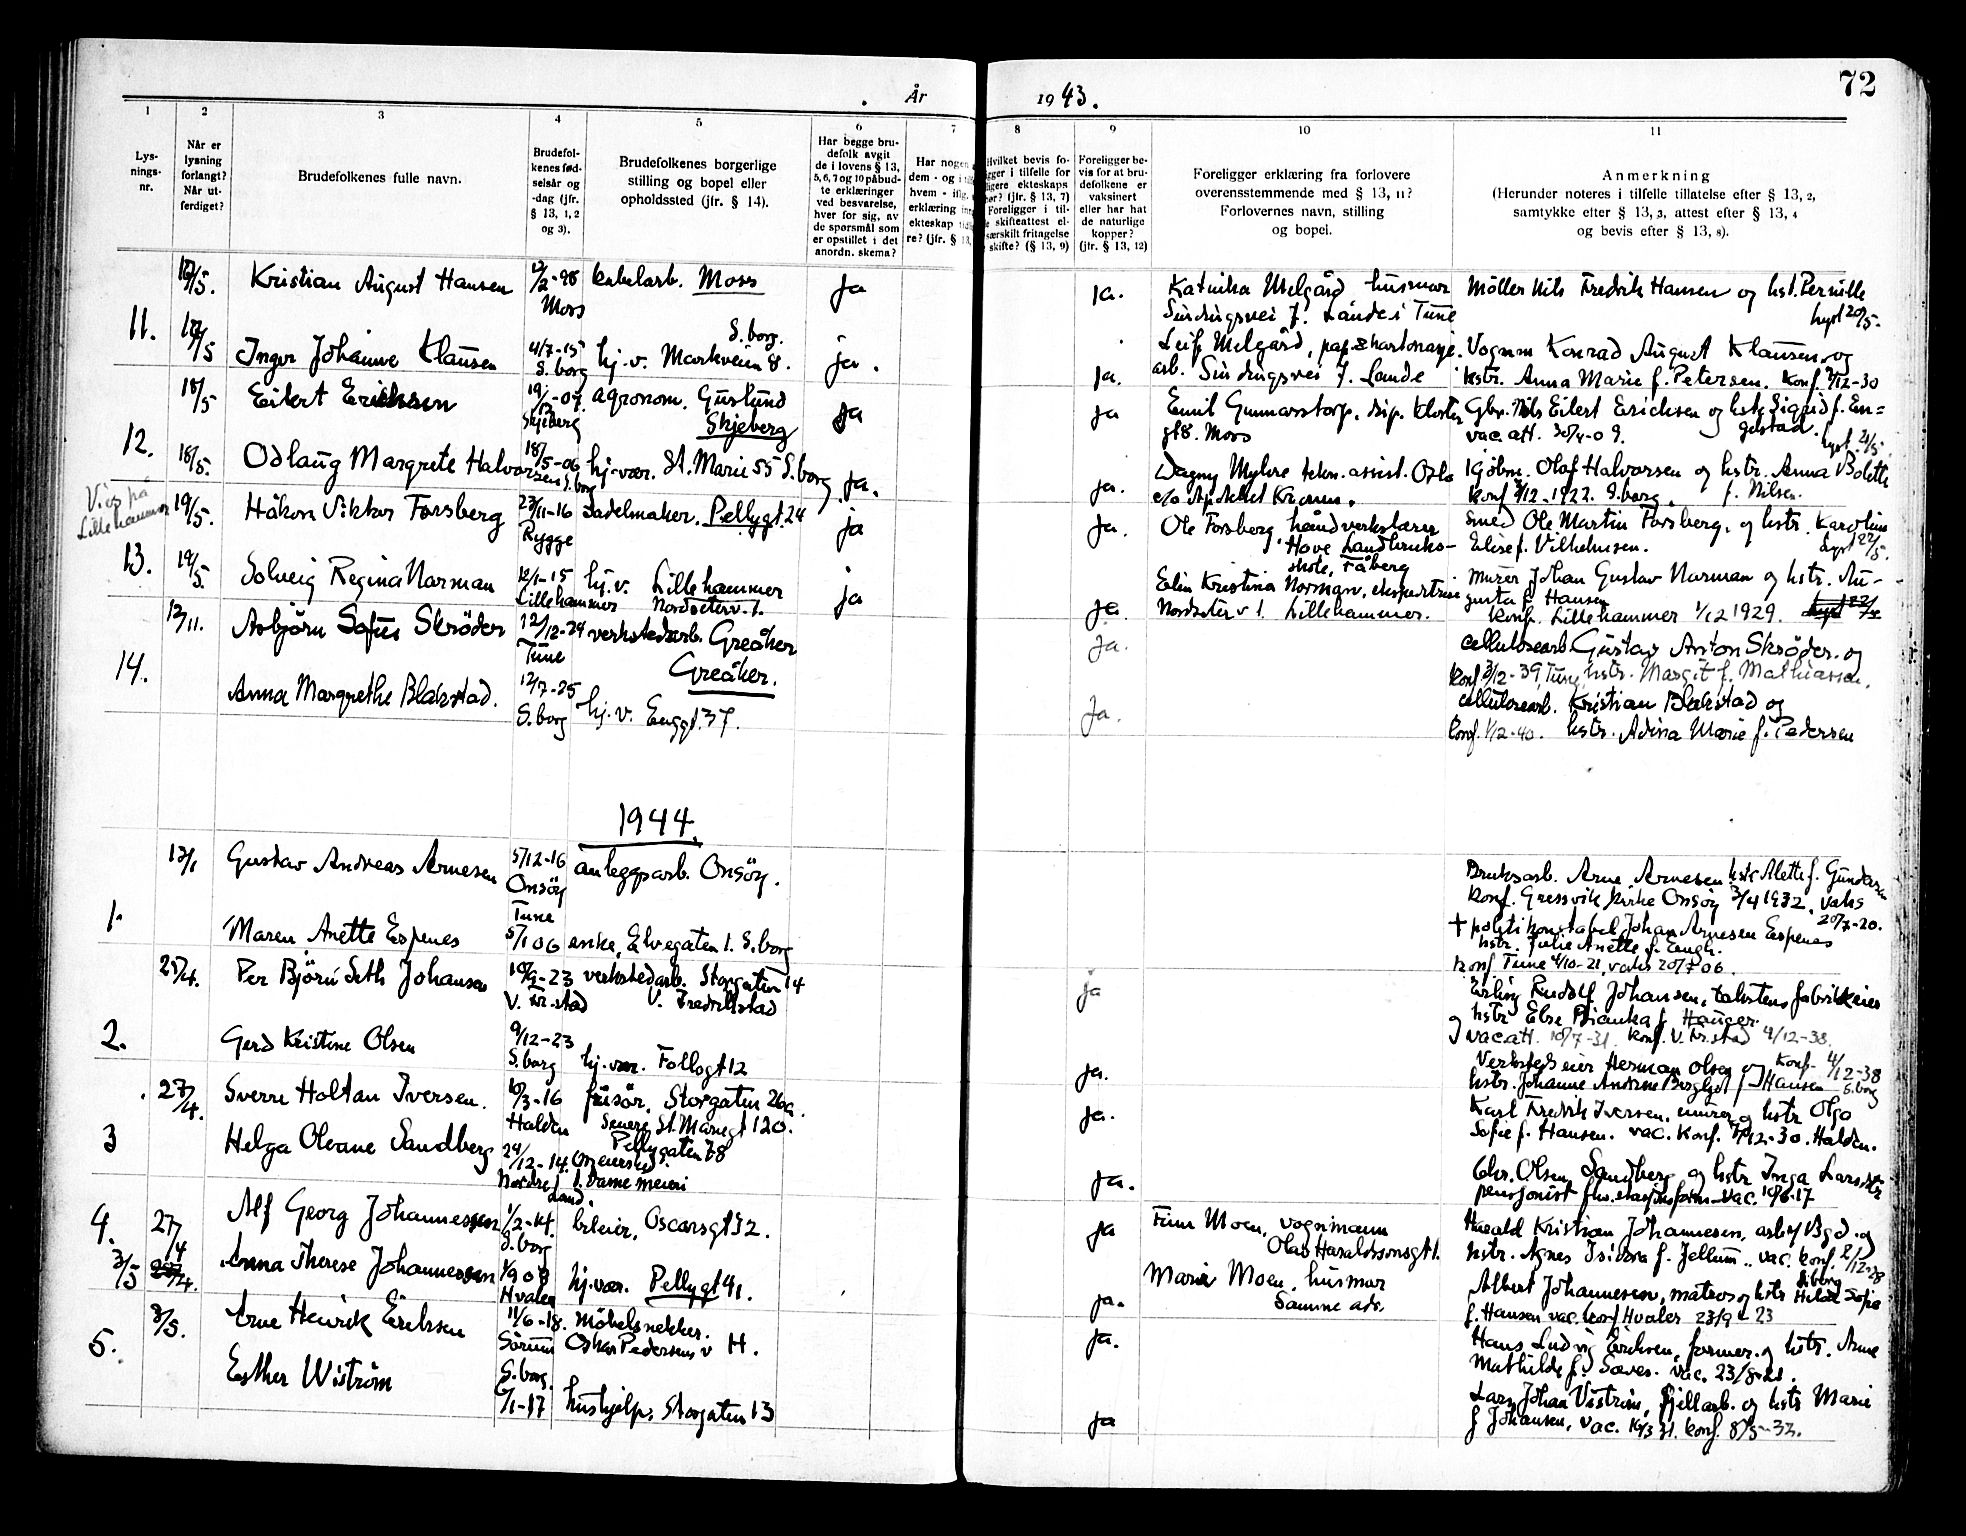 72
År 1943.
1
2
3
4
5
6
7
8
9
10
11
Lys-
nings-
nr.
Når er
lysning
forlangt?
Når ut-
ferdiget?
Brudefolkenes fulle navn.
Brudefol-
kenes fød-
selsår og
-dag (jfr.
§ 13, 1, 2
og 3).
Brudefolkenes borgerlige
stilling og bopel eller
opholdssted (jfr. § 14).
Har begge bru-
defolk avgit
de i lovens § 13,
5, 6, 7 og 10 påbud-
te erklæringer
ved besvarelse,
hver for sig, av
de spørsmål som
er opstillet i det
anordn. skema?
Har nogen
dem - og i
hvem - ifig.
erklæring
ekteskap
re? (jfr. § 13,
Hvilket bevis fo-
ligger i tilfelle for
tidligere ekteskaps
(jfr. § 13, 7)
Foreligger i til-
skifteattest el-
særskilt fritagelse
skifte? (§ 13, 9)
Foreligger be-
vis for at bru-
defolkene er
vaksinert
eller har hat
de naturlige
kopper?
(jfr. § 13, 12)
Foreligger erklæring fra forlovere
overensstemmende med § 13, 11?
Forlovernes navn, stilling
og bopel.
Anmerkning
(Herunder noteres i tilfelle tillatelse efter § 13, 2,
samtykke efter § 13, 3, attest efter § 13, 4
og bevis efter § 13, 8).
Kristian August Hansen 12/2-98 kabelarb. Moss ja ja. husmor Møller Nils Fredrik Hansen og hst. Pernille
Moss Lande i Tune lyst 20/5.
11. Inger Johanne Klausen 4/7-15 hj.v. Markveien 8. ja. Leif Melgård, Vognm Konrad August Klausen og
S.borg S.borg. ja. arb. Lande hstr. Anna Marie f. Petersen. Konf. 12-30
18/5 Eilert Erichsen agronom. Guslund ja ja Emil Gunnarstorp. Gbr. Nils Eilert Erichsen og hstr Sigrid f. En=
Skjeberg Skjeberg gt 8. Moss vac. att. 30/4-09. gestad. lyst 21/5.
12. 18/5. Odlaug Margrete Halvorsen 18/5-06 hj.vær. St. Marie 55 S.borg ja. ja. Dagny Myhre assist. Oslo Olaf Halvorsen og hstr. Anna Bolette
S.borg c/o Apoteket Kronen. Konf 12.1922. S.borg. f. Nilsen.
Vies på
Lillehammer
19/5. Håkon Viktor Forsberg 23/11-16 sadelmaker. Pellygt. 24 ja ja. Ole Forsberg, håndverkslærer Smed Ole Martin Forsberg, og hstr. Karoline
Rygge Hove Landbruks- Elise f. Vilhelmsen. lyst 22/5.
skole, Fåberg
13. 19/5 Solveig Regina Norman 12/1-15 hj.v. Lillehammer ja ja. Elin Kristina Norman, ekspeditrise Murer Johan Gustav Norman og hstr. Au-
Lillehammer Nordseterv. 1. Nordseter v 1. Lillehammer. gusta f. Hansen
Konf. Lillehammer 1/12 1929.
12/11. Asbjørn Sofus Skrøder 12/12-24 verkstedarb. Greåker ja. cellulosearb. Gustav Anton Skrøder. og
Tune Greåker. Konf 3/12-39, Tune, hstr. Margit f. Mathiassen.
14. Anna Margrethe Blakstad. 12/7-25 ja. cellulosearb. Kristian Blakstad og
S.borg hj.v. Enggt. 37. Konf. 1/12-40. hstr. Adina Marie f. Pedersen
1944.
13/1 Gustav Andreas Arnesen 5/12-16 anleggsarb. Onsøy. Bruksarb. Arne Arnesen hstr Alette f. Gundersen
Onsøy Konf. Gressvik kirke Onsøy 3/4 1932, vaks
20/7-20.
1. Maren Anette Espenes Tune enke, Elvegaten 1. S.borg + politikonstabel Johan Arnesen Espenes
5/1 06 hstr. Julie Anette f. Engh.
Konf Tune 4/10-21, vaks 20/7 06.
25/4. Per Bjørn Seth Johansen 10/9-23 verkstedarb. Storgaten 14 ja Erling Rudolf Johansen, fabrikkeier
V. Fr.stad V. Fredrikstad og hstr Else Bianka f. Hauger.
vac att. 10/7-31. Konf. V. Fr.stad 4/12-38.
2. Gerd Kristine Olsen 9/12-23 ja. Verkstedseier Herman Olsen og Konf. 4/12-38
S.borg hj.vær. Follogt 12 hstr. Johanne Andrine Bergljot f Hansen S.borg
27/4. Sverre Holtan Iversen. 10/3-16 frisør, Storgaten 26a. ja. Karl Fredrik Iversen, murer og hstr Olga
Halden Senere St. Mariegt 120. Sofie f. Hansen. vac. Konf. 12-30. Halden.
3 Helga Oleane Sandberg 24/12-14. Pellygaten 78 ja. Chr. Olsen Sandberg og hstr Inga Larsdtr
Nordre Land. vac. 10/6-17
4. 27/4 Alf Georg Johannessen 1/2-14. bileier, Oscarsgt 52. ja Finn Moen, vognmann Harald Kristian Johannesen, arb og
S.borg Olav Haraldssonsgt 1. hstr. Agnes Isidora f. Jellum. vac. konf. 2/12-28
3/5 Anna Therese Johannessen 1/9 08 hj.vær. Pellygt 41. ja. Marie Moen, husmor Albert Johannesen, matros og hstr Hilda Sofie
Hvaler Samme adr. f. Hansen vac. konf Hvaler 23/9 23
3/5. Arne Henrik Eriksen 11/6-18. møbelsnekker. ja. Hans Ludvig Eriksen, former og hstr. Anne
Sørum Oskar Pedersens v H. Mathilde f. Sæves. vac. 23/8-21.
5. Esther Wistrøm S.borg. Lars Johan Vistrøm, fjellarb. og hstr Marie
6/1-17 hushjelp, Storgaten 13 ja f Johansen, vac. konf. 8/5-32.